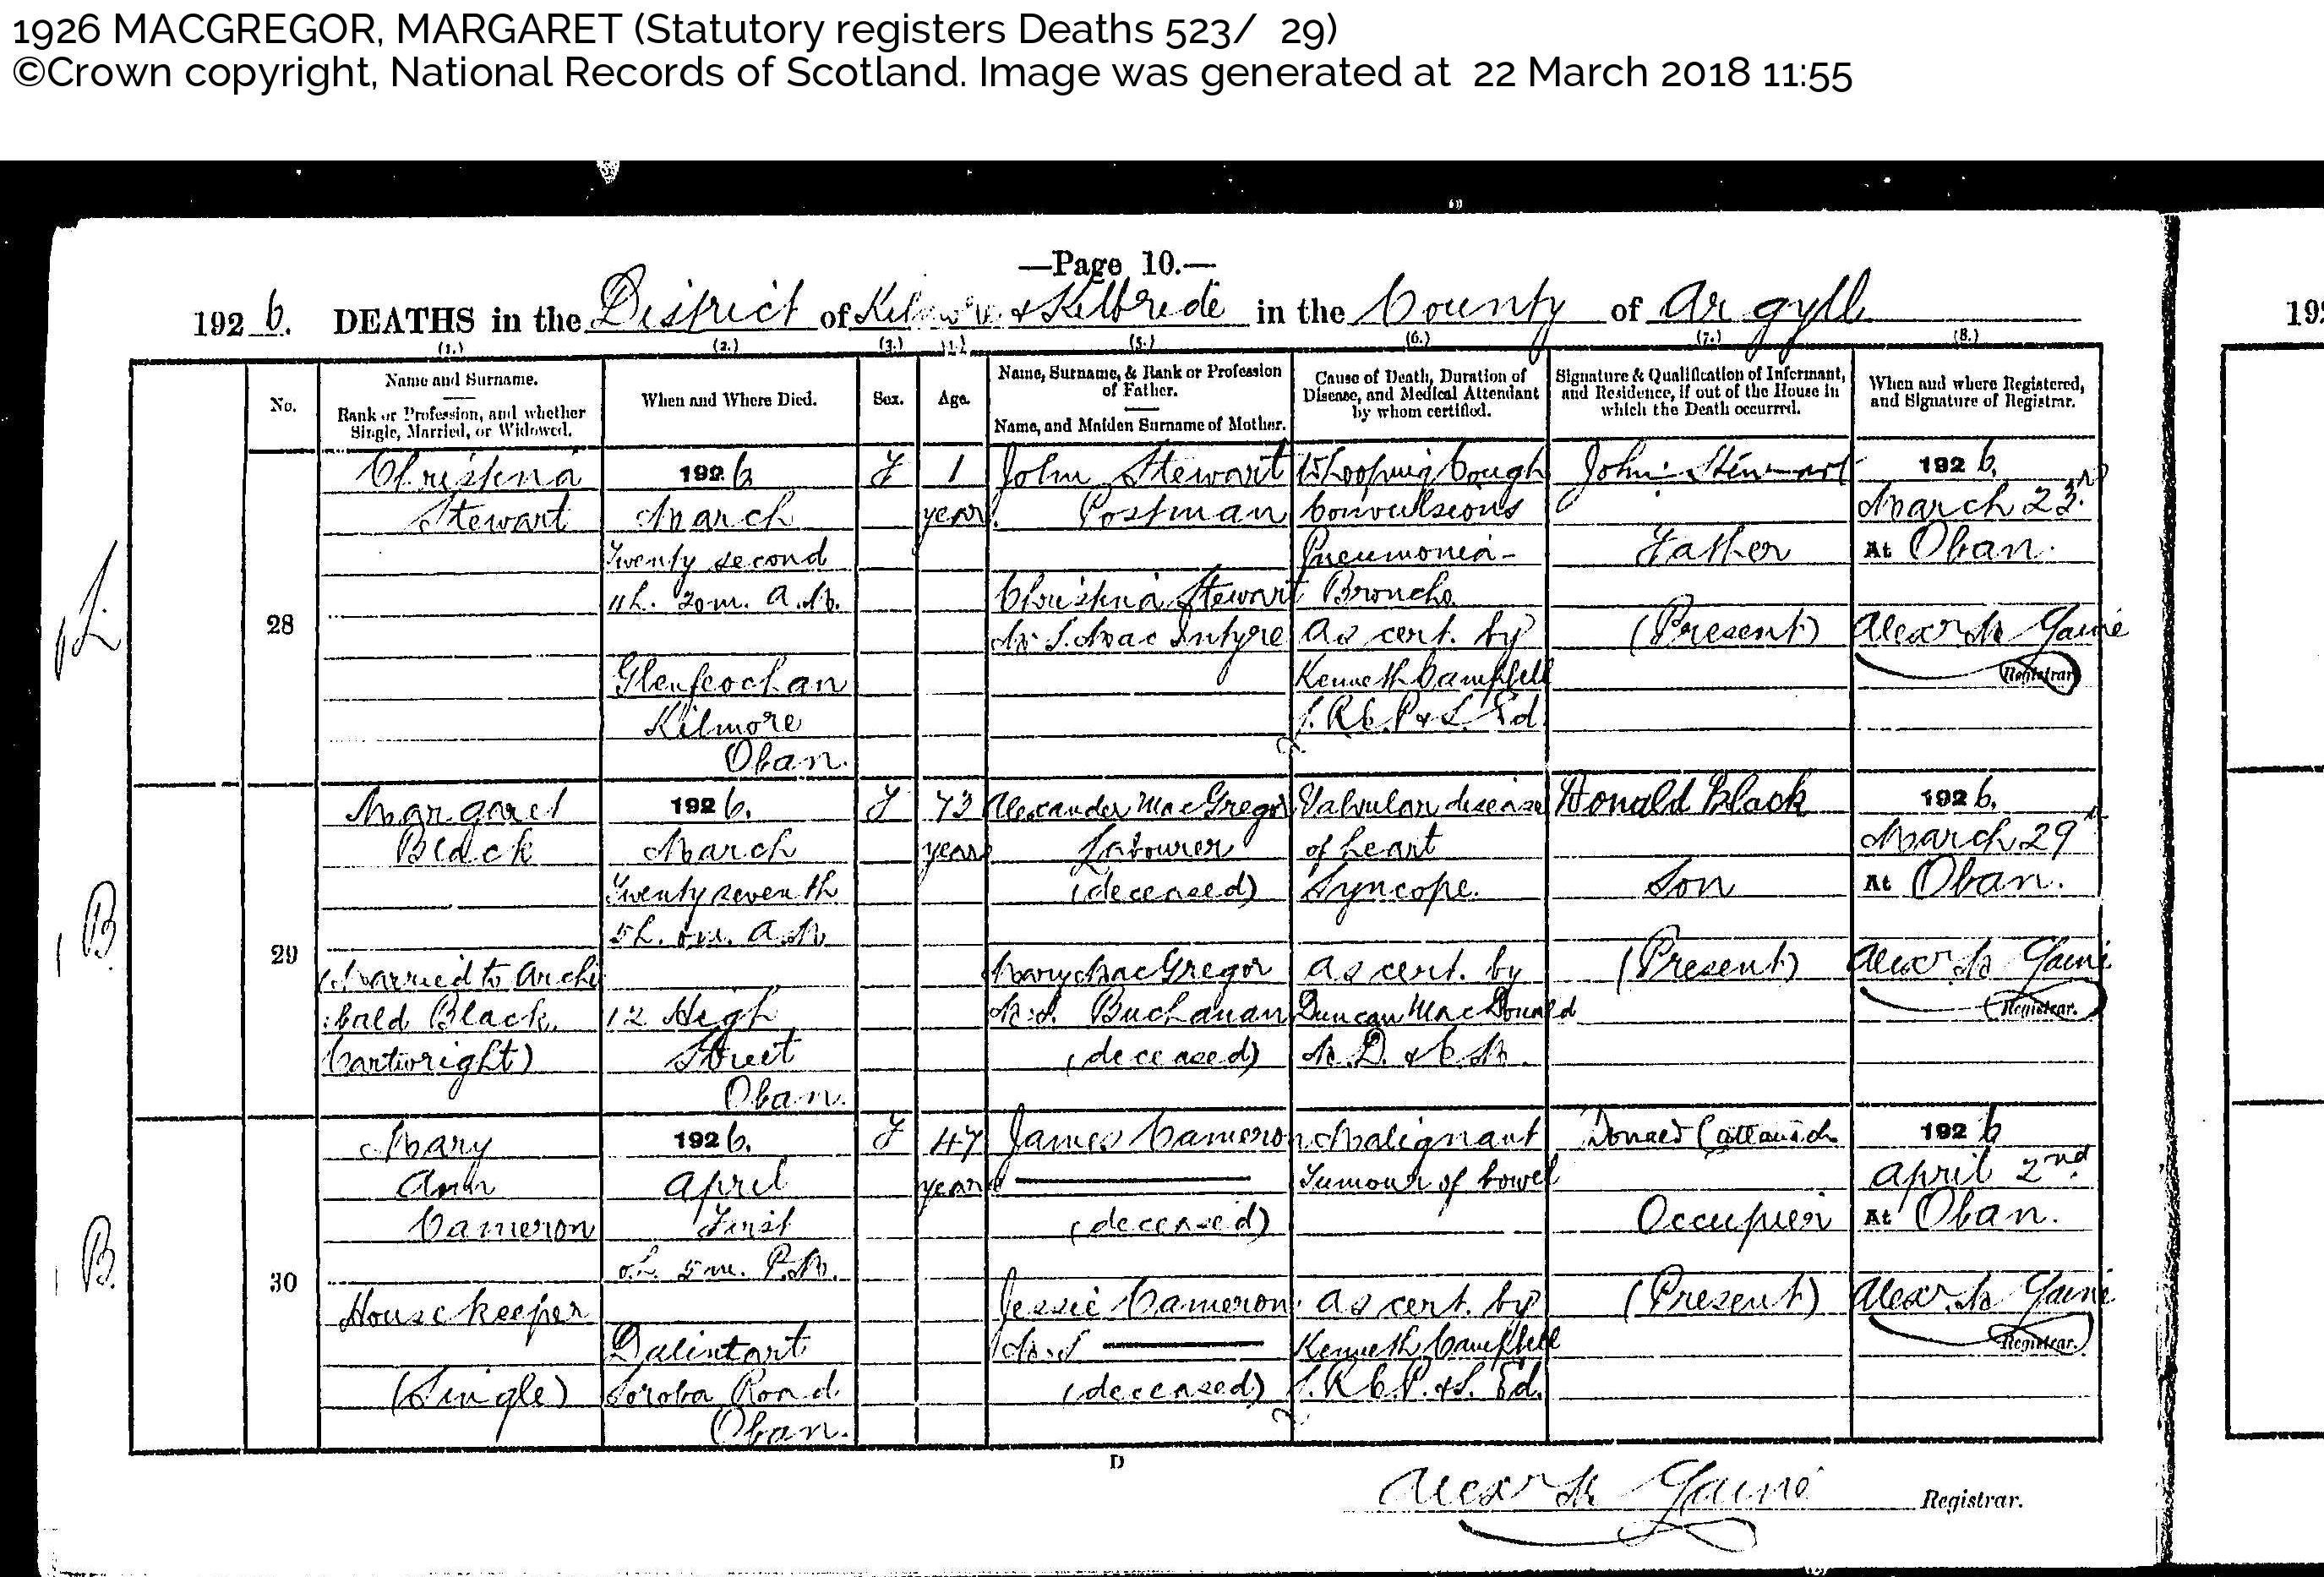 1926 MACGREGOR, MARGARET (Statutory registers Deaths 523/ 29)
©Crown copyright, National Records of Scotland. Image was generated at 22 March 2018 11:55
—Page 10.—
1926. DEATHS in the District of Kilmore & Kilbride in the County of Argyll
(1.) (2.) (3.) (4.) (5.) (6.) (7.) (8.)
No.
Name and Surname.
Rank or Profession, and whether
Single, Married, or Widowed.
When and Where Died.
Sex.
Age.
Name, Surname, & Rank or Profession
of Father.
Name, and Maiden Surname of Mother.
Cause of Death, Duration of
Disease, and Medical Attendant
by whom certified.
Signature & Qualification of Informant,
and Residence, if out of the House in
which the Death occurred.
When and where Registered,
and Signature of Registrar.
28
Christina
Stewart
1926
March
Twenty second
11h. 20m. A.M.
Glenfeochan
Kilmore
Oban.
F
1
year.
John Stewart
Postman
Christina Stewart
M.S. MacIntyre
Whooping Cough
Convulsions
Pneumonia-
Broncho
As cert. by
Kenneth Campbell
L.R.C.P. & S. Ed.
John Stewart
Father
(Present)
1926.
March 23rd
At Oban.
Alexr M Gaine
Registrar
29
Margaret
Black
(Married to Archi
:bald Black,
Cartwright)
1926.
March
Twenty seventh
5h. 0m. A.M.
12 High
Street
Oban.
F
73
years
Alexander MacGregor
Labourer
(deceased)
Mary MacGregor
M.S. Buchanan
(deceased)
Valvular disease
of heart
Syncope.
As cert. by
Duncan MacDonald
M.D. & C.M.
Donald Black
Son
(Present)
1926.
March 29th
At Oban.
Alexr M Gaine
Registrar.
30
Mary
Ann
Cameron
Housekeeper
(Single)
1926.
April
First
0h. 5m. P.M.
Dalintart
Soroba Road
Oban.
F
47
years
James Cameron
(deceased)
Jessie Cameron
M.S
(deceased)
Malignant
Tumour of bowel
As cert. by
Kenneth Campbell
L.R.C.P. & S. Ed.
Donald Cattanach
Occupier
(Present)
1926
April 2nd.
At Oban.
Alexr M Gaine
Registrar.
D
Alexr M Gaine Registrar.